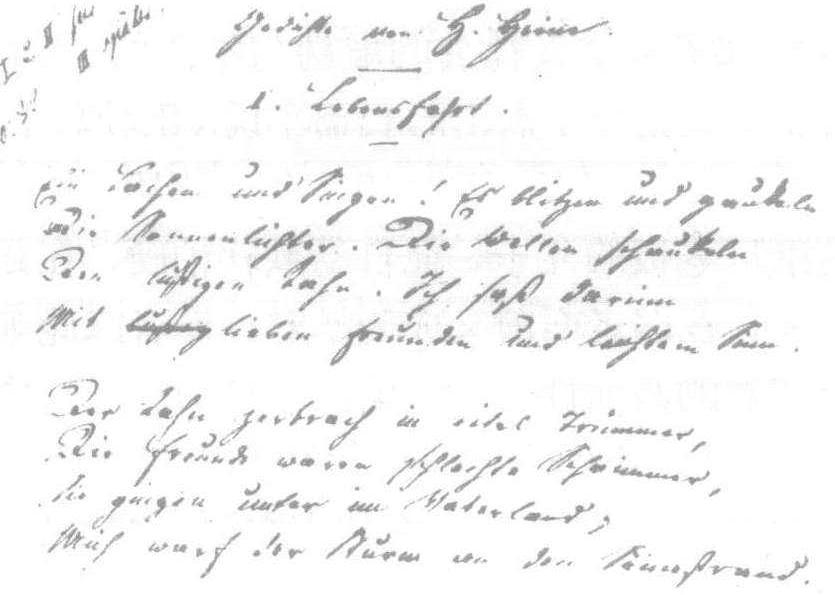 Gedichte von H. Heine.
1. Lebensfahrt.
Ein Lachen und Singen! Es blitzen und gaukeln
Die Sonnenlichter. Die Wellen schaukeln
Den lustigen Kahn. Ich saß darinn
Mit lustig lieben Freunden und leichtem Sinn.
Der Kahn zerbrach in eitel Trümmer,
Die Freunde waren schlechte Schwimmer,
Sie gingen unter im Vaterland;
Mich warf der Sturm an den Seinestrand.